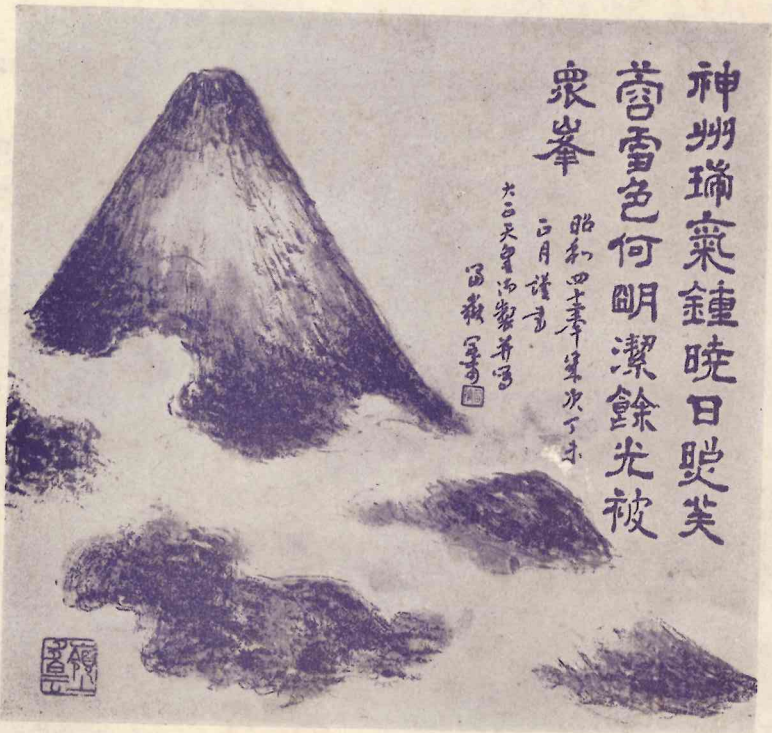 神州瑞氣鍾暁日照芙
蓉雪色何明潔餘光被
衆峯
昭和四十二年歳次丁未
正月謹書
大正天皇御製并写
富嶽